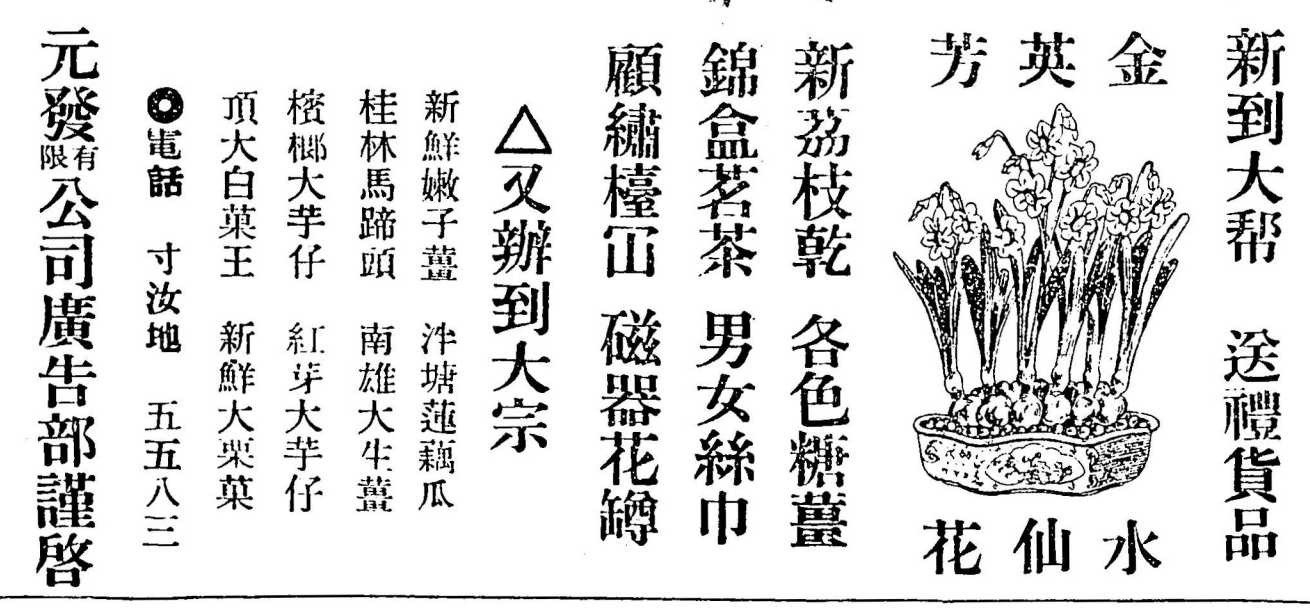 新到大帮 送禮貨品
金英芳
水仙花
新荔枝乾 各色糖薑
錦盒茗茶 男女絲巾
顧繡檯冚 磁器花罇
△又辦到大宗
新鮮嫩子薑 泮塘蓮藕瓜
桂林馬蹄頭 南雄大生薑
檳榔大芋仔 紅芽大芋仔
頂大白菓王 新鮮大栗菓
◎電話 寸汝地 五五八三
元發有限公司廣告部謹啓